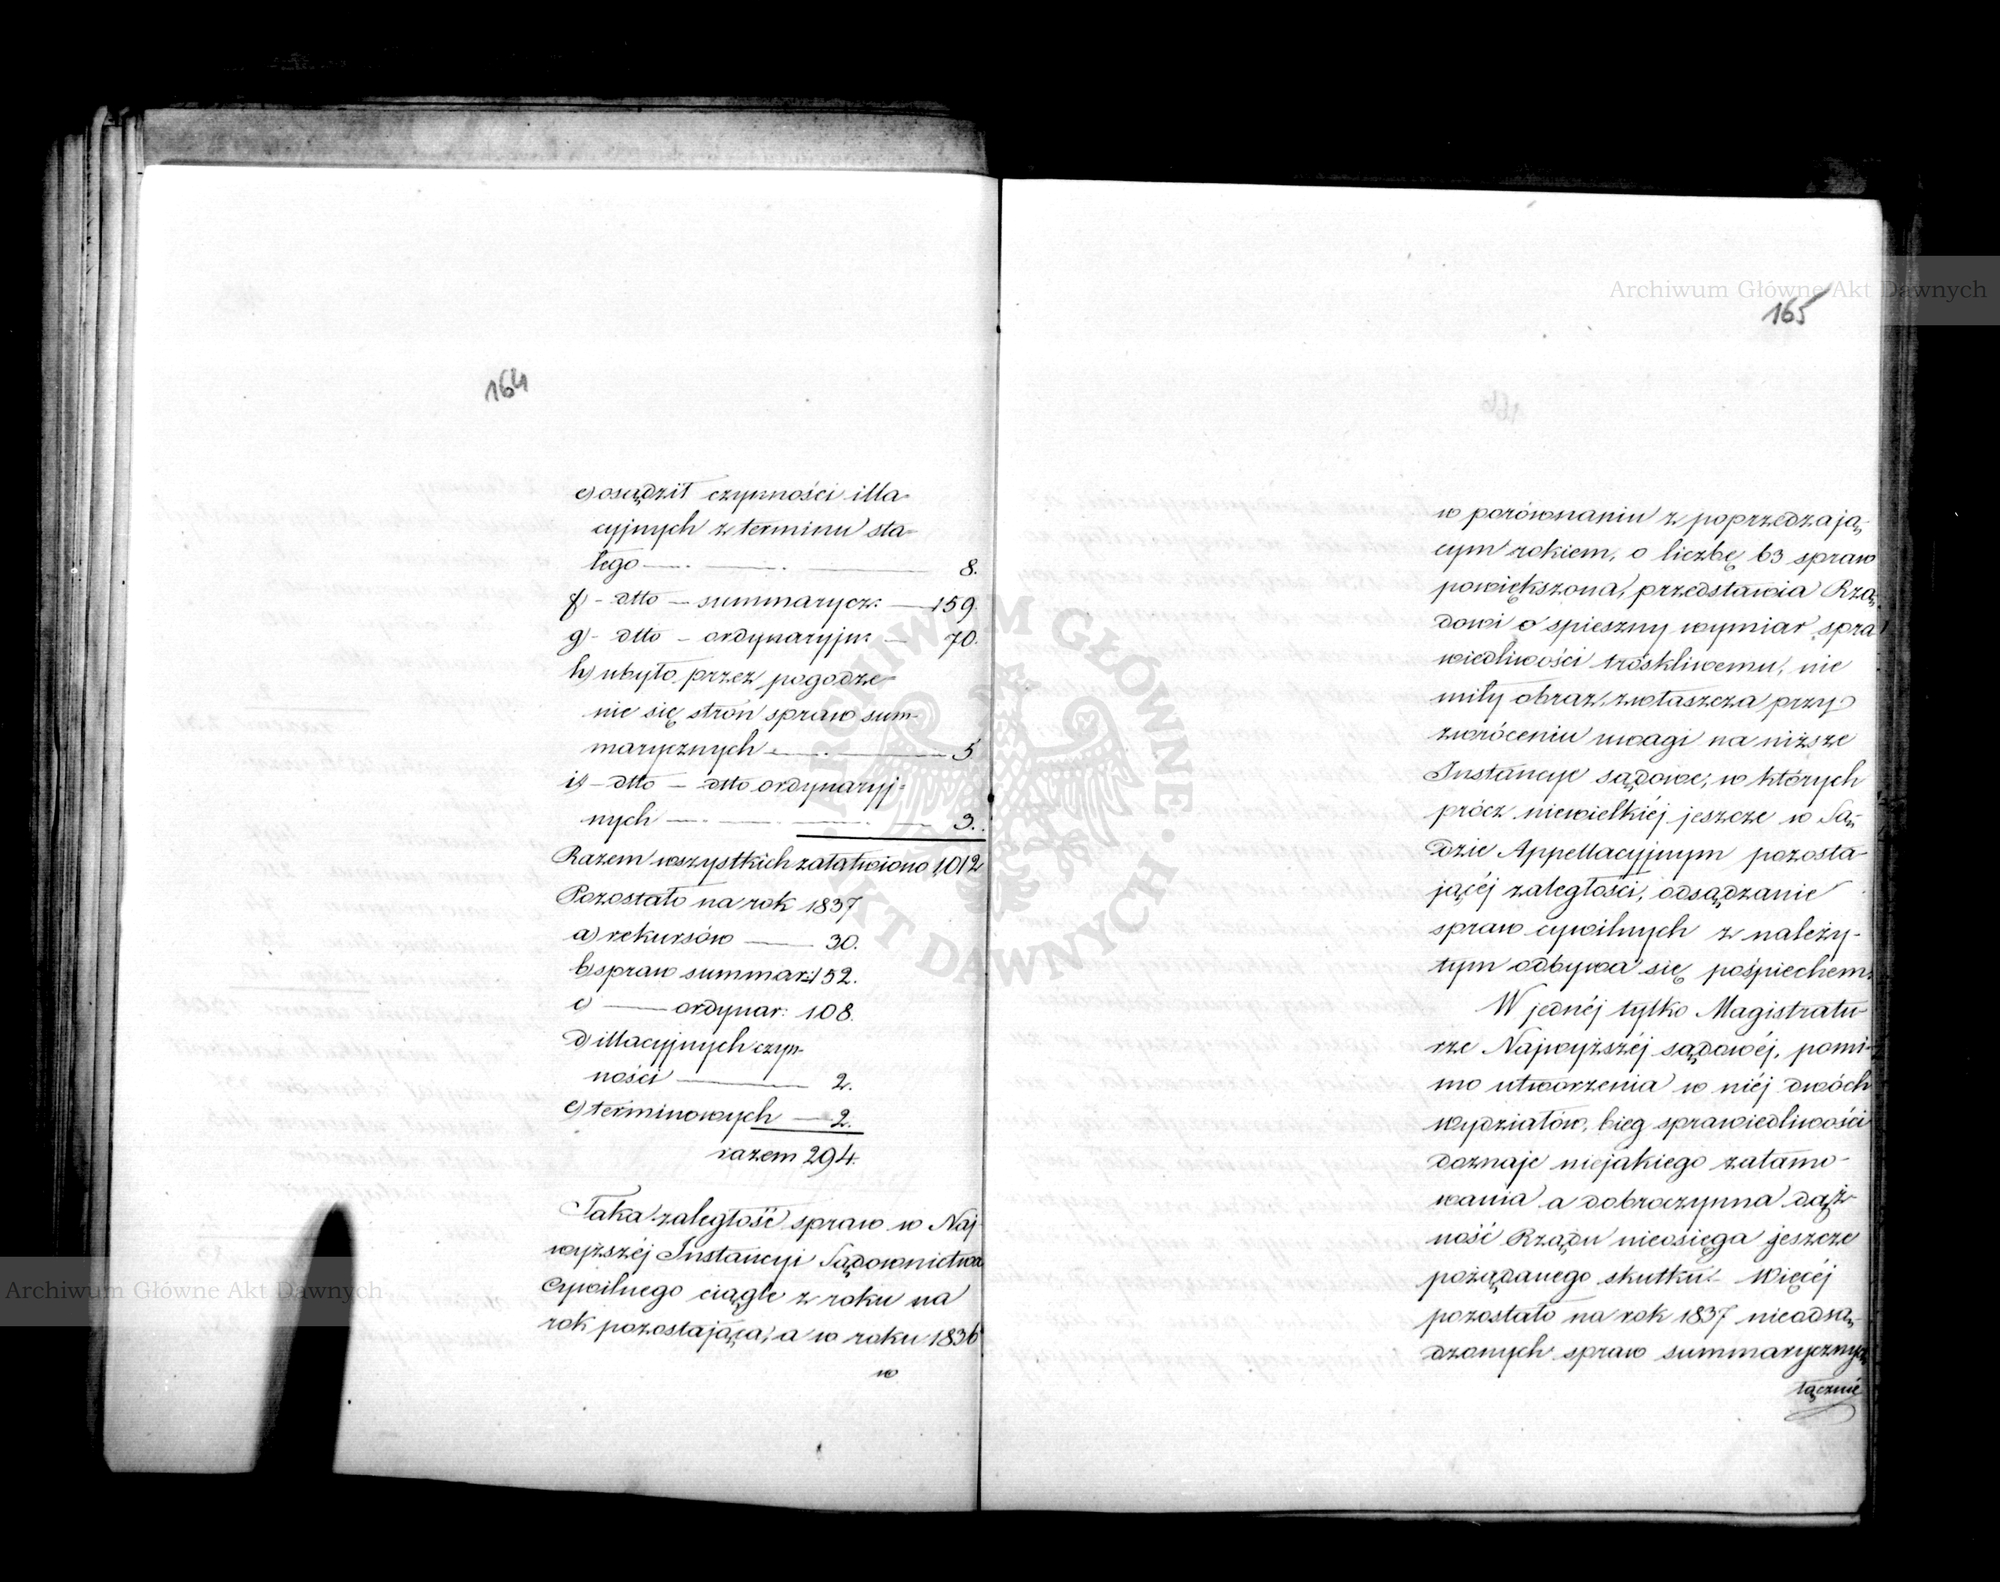 164
e) osądził czynności illa-
cyjnych z terminu sta-
łego — 8.
f) - dtto — summarycz: — 159.
g) - dtto — ordynaryjn: — 70.
h) ubyło przez pogodze-
nie się stron spraw sum-
marycznych — 5
i) - dtto — dtto ordynaryj-
nych — 3.
Razem wszystkich załatwiono 1,012
Pozostało na rok 1837
a) rekursów — 30.
b) spraw summar: 152.
c — ordynar: 108.
d) illacyjnych czyn-
ności — 2.
e) terminowych — 2.
razem 294.
Taka zaległość spraw w Naj-
wyższéj Instancyi Sądownictwa
Cywilnego ciągle z roku na
rok pozostająca, a w roku 1836
w
165
w porównaniu z poprzedzają-
cym rokiem, o liczbę 63 spraw
powiększona, przedstawia Rzą-
dowi o spieszny wymiar spra-
wiedliwości troskliwemu, nie
miły obraz, zwłaszcza przy
zwróceniu uwagi na niższe
Instancye sądowe, w których
prócz niewielkiéj jeszcze w Są-
dzie Appellacyjnym pozosta-
jącéj zaległości, odsądzanie
spraw cywilnych z należy-
tym odbywa się pośpiechem.
W jednéj tylko Magistratu-
rze Najwyższéj sądowéj, pomi-
mo utworzenia w niéj dwóch
wydziałów, bieg sprawiedliwości
doznaje niejakiego zatamo-
wania a dobroczynna dąż-
ność Rządu nieosięga jeszcze
pożądanego skutku. Więcéj
pozostało na rok 1837 nieodsą-
dzonych spraw summarycznych
łącznie
Archiwum Główne Akt Dawnych
Archiwum Główne Akt Dawnych
ARCHIWUM GŁÓWNE AKT DAWNYCH